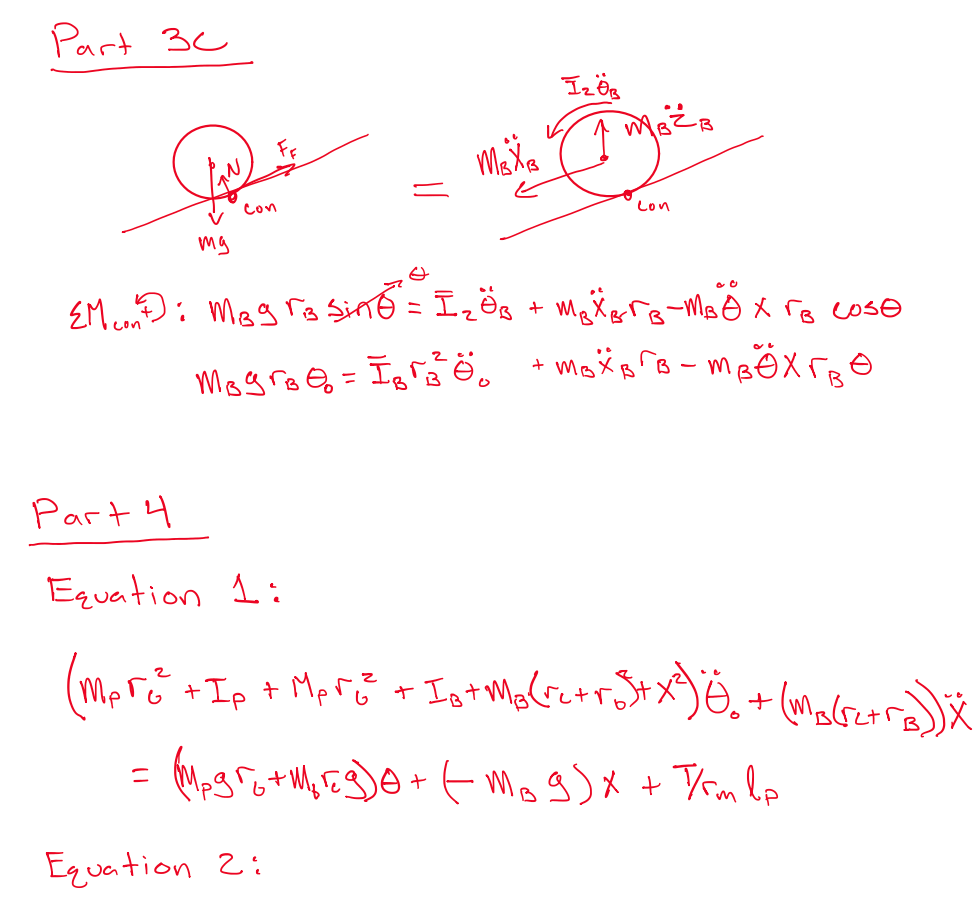 Part 3c
Ī₂θ̈_B
m_B z̈_B
m_B ẍ_B
F_F
N
con
=
con
mg
ΣM_con ↺+ : m_B g r_B sinθ → θ = Ī₂ θ̈_B + m_B ẍ_B r_B - m_B θ̈ x r_B cosθ
m_B g r_B θ₀ = Ī_B r_B² θ̈₀ + m_B ẍ_B r_B - m_B θ̈ x r_B θ
Part 4
Equation 1:
(m_p r_G² + I_p + M_p r_G² + I_B + m_B(r_c + r_b)² + x²) θ̈₀ + (m_B(r_c + r_B)) ẍ
= (m_p g r_G + m_b r_c g)θ + (- m_B g) x + T/r_m l_p
Equation 2: